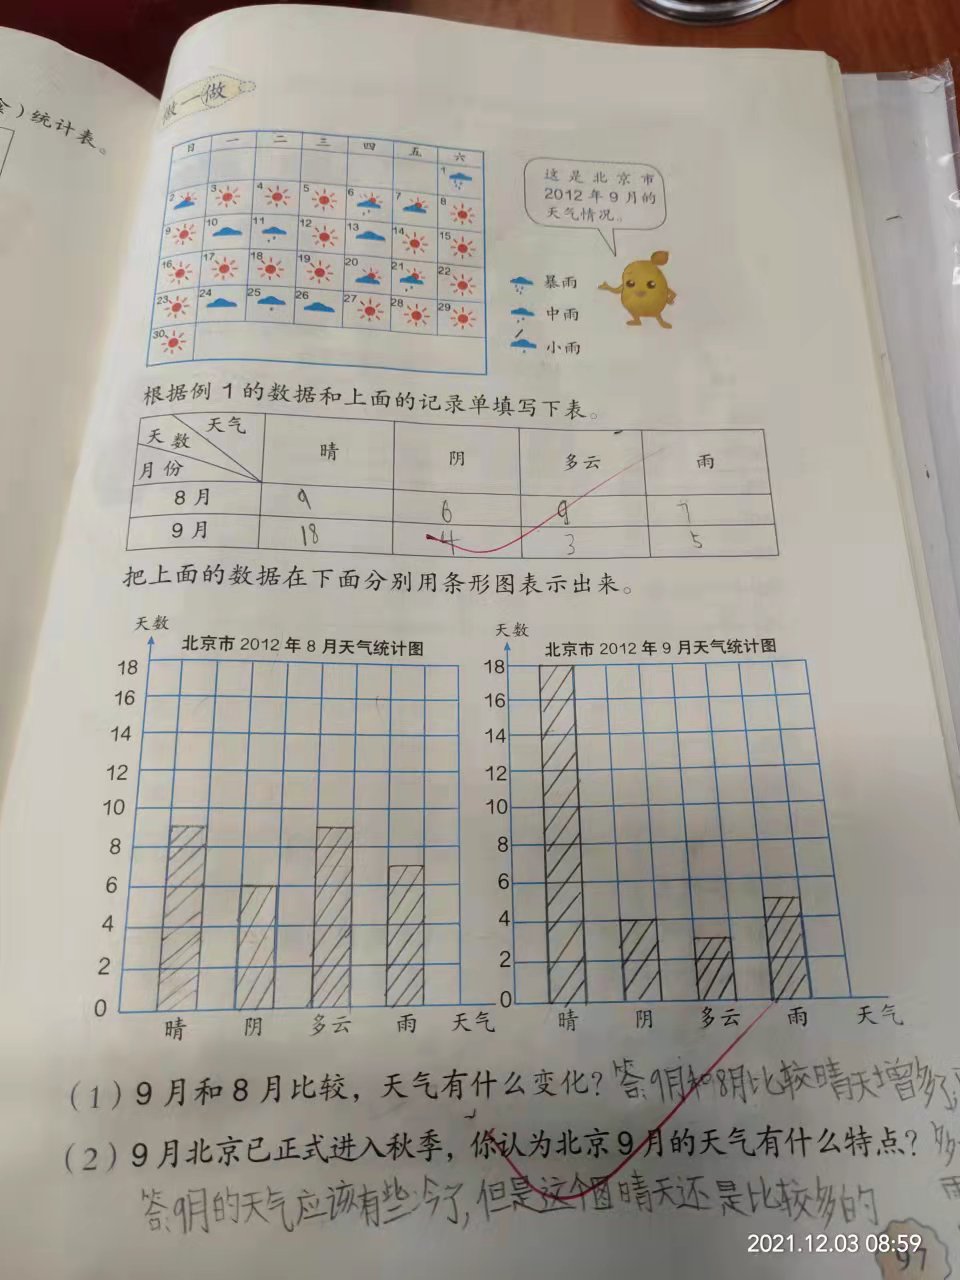 统计表。
做一做
日 一 二 三 四 五 六
1
2 3 4 5 6 7 8
9 10 11 12 13 14 15
16 17 18 19 20 21 22
23 24 25 26 27 28 29
30
这是北京市
2012年9月的
天气情况。
暴雨
中雨
小雨
根据例1的数据和上面的记录单填写下表。
天气 天数 月份 晴 阴 多云 雨
8月 9 6 9 7
9月 18 4 3 5
把上面的数据在下面分别用条形图表示出来。
天数
北京市2012年8月天气统计图
18
16
14
12
10
8
6
4
2
0
晴 阴 多云 雨 天气
天数
北京市2012年9月天气统计图
18
16
14
12
10
8
6
4
2
0
晴 阴 多云 雨 天气
(1)9月和8月比较，天气有什么变化？答:9月和8月比较晴天增多了,
(2)9月北京已正式进入秋季，你认为北京9月的天气有什么特点？
答:9月的天气应该有些冷了,但是这个图晴天还是比较多的
97
2021.12.03 08:59